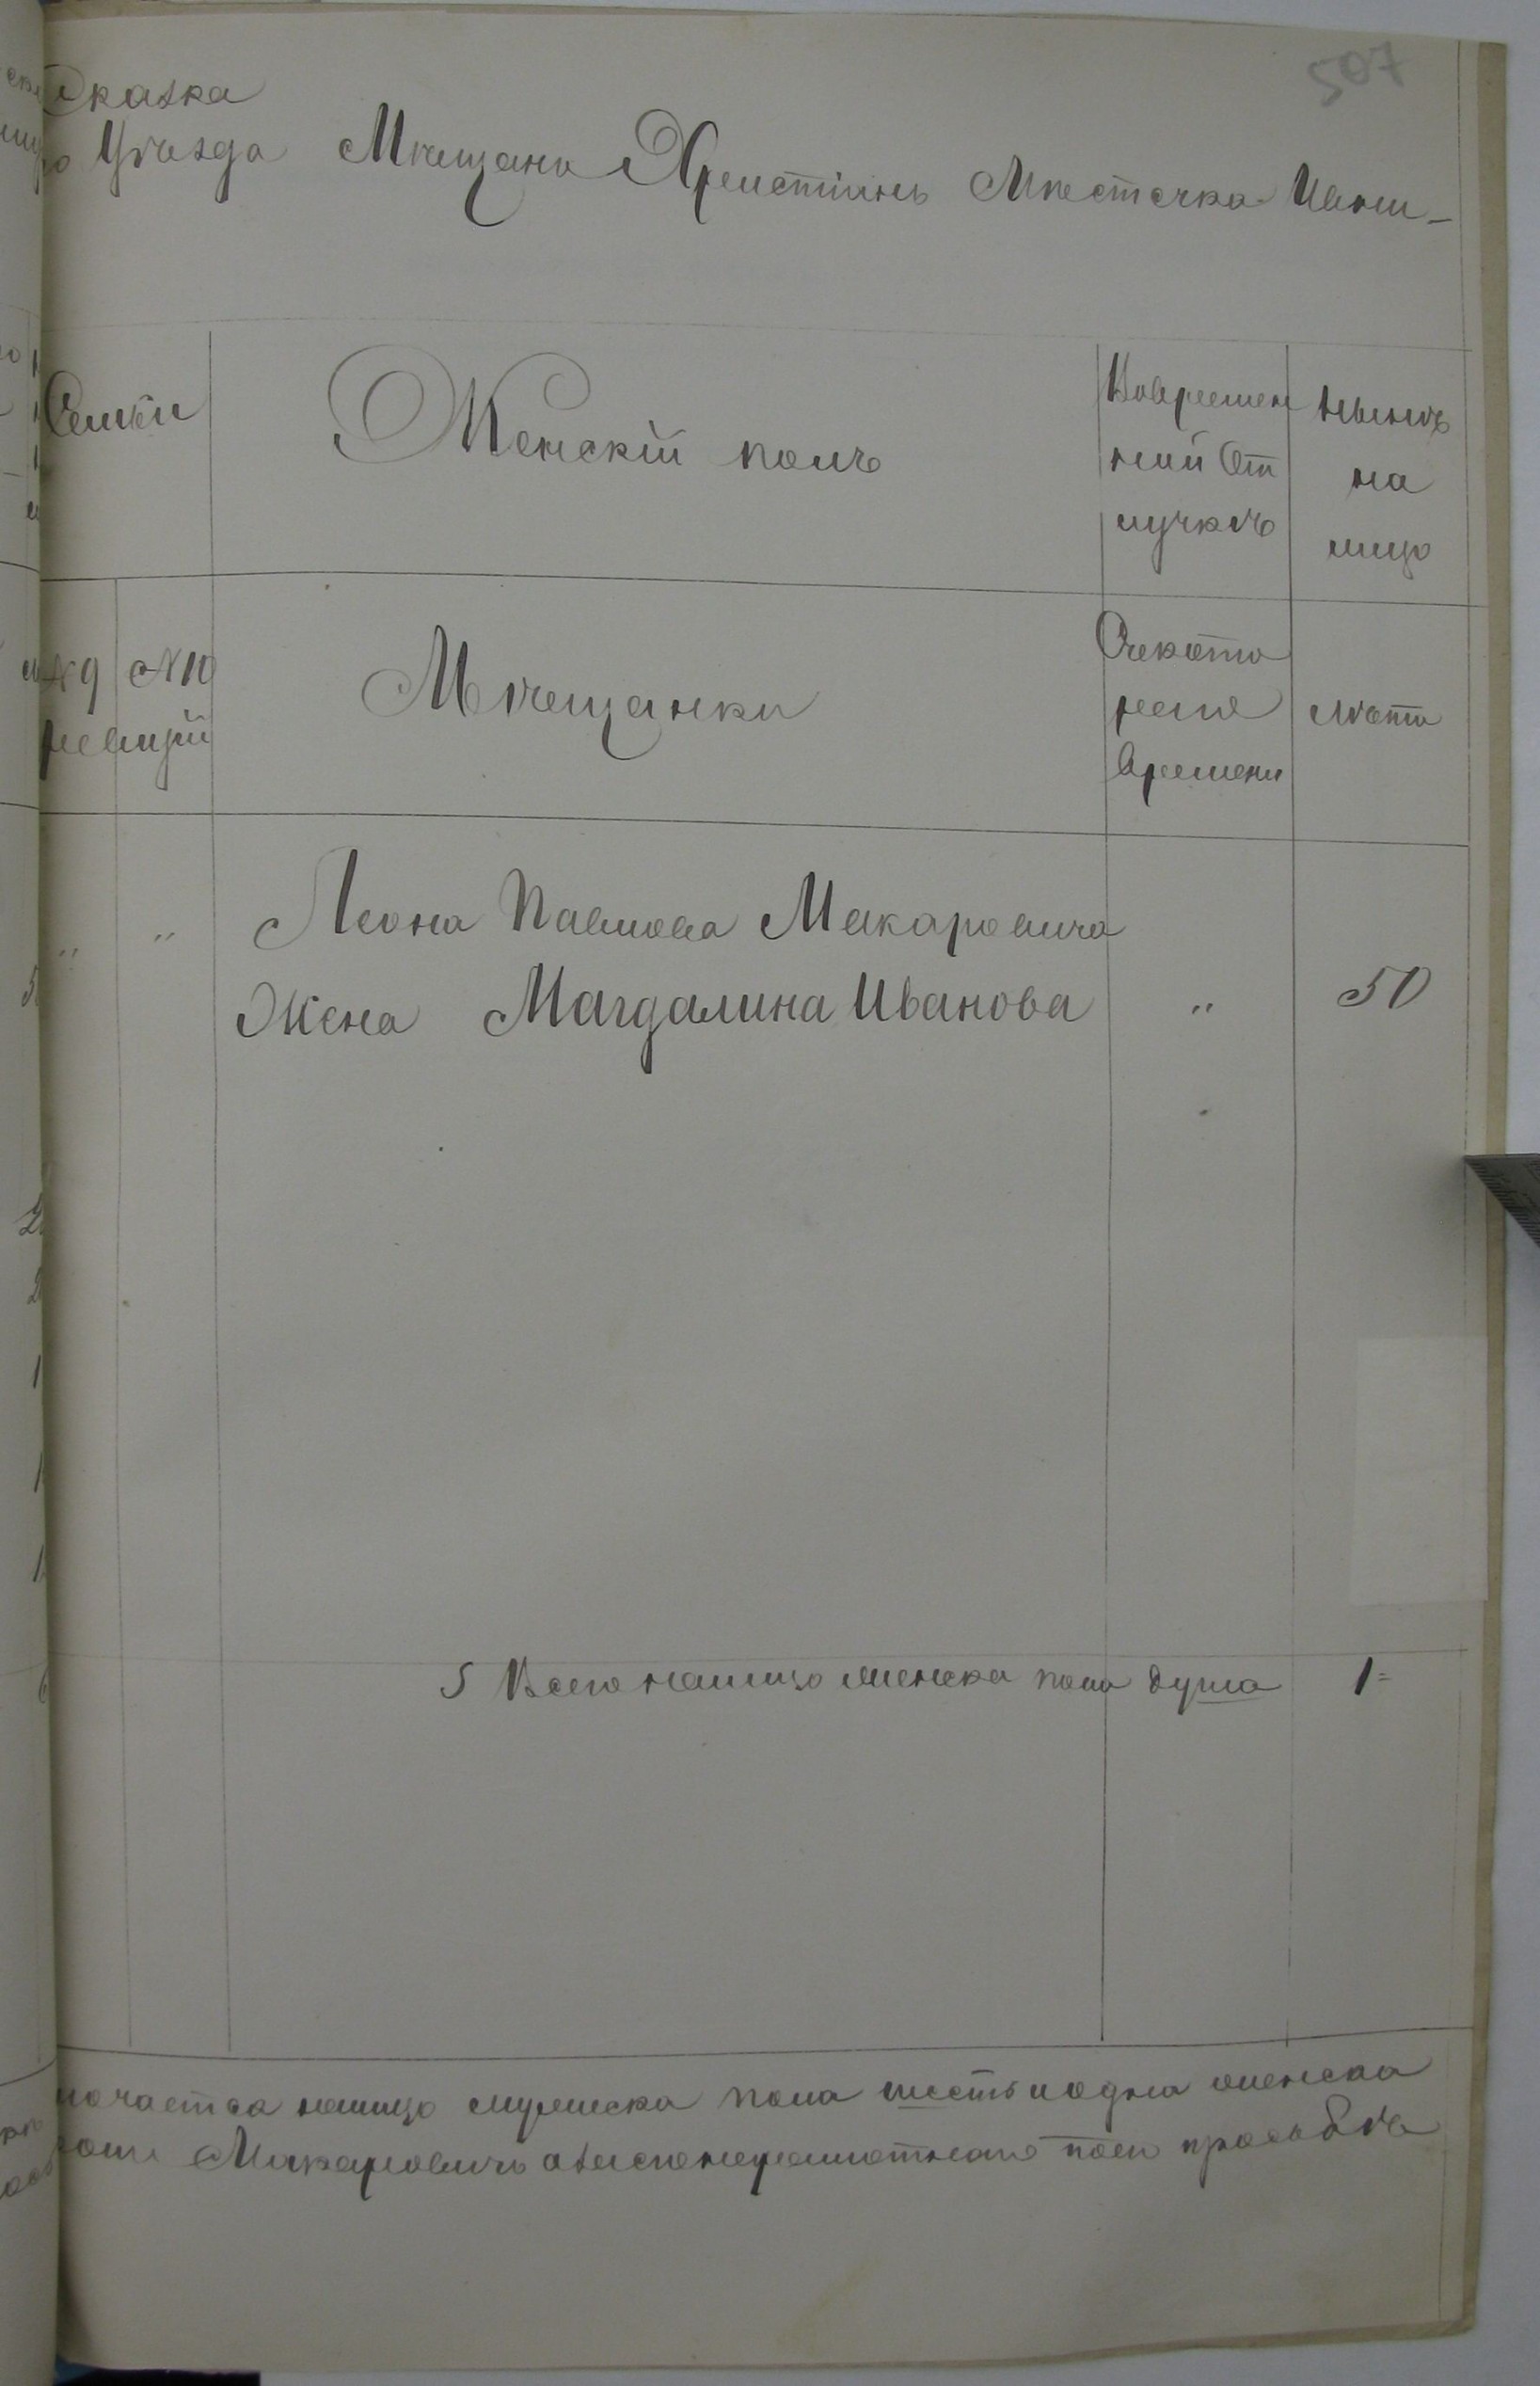 507
Сказка
Уѣзда Мѣщанъ Христіянъ Мѣстечка Ивни-
Семьи
Женскій полъ
Вовремен
ной От
лучкѣ
Нынѣ
на
лицо
№ 9 № 10
ревизій
Мѣщанки
Съкото
раго
Времени
Лѣта
" " Леона Павлова Макаровича
Жена Магдалина Иванова " 50
Всего налицо женска пола душа 1=
лочается налицо мужеска пола шесть и одна женска
Макаровичъ азаегонеграмотнаго поего прозьбѣ